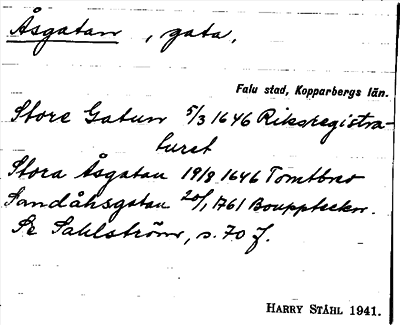 Åsgatan, gata,
Falu stad, Kopparbergs län.
Store Gatun 5/3 1646 Riksregistra-
turet
Stora Åsgatan 19/9 1646 Tomtbrev
Sandåhsgatan 20/1 1761 Bouppteckn.
Se Sahlström, s. 70 f.
HARRY STÅHL 1941.